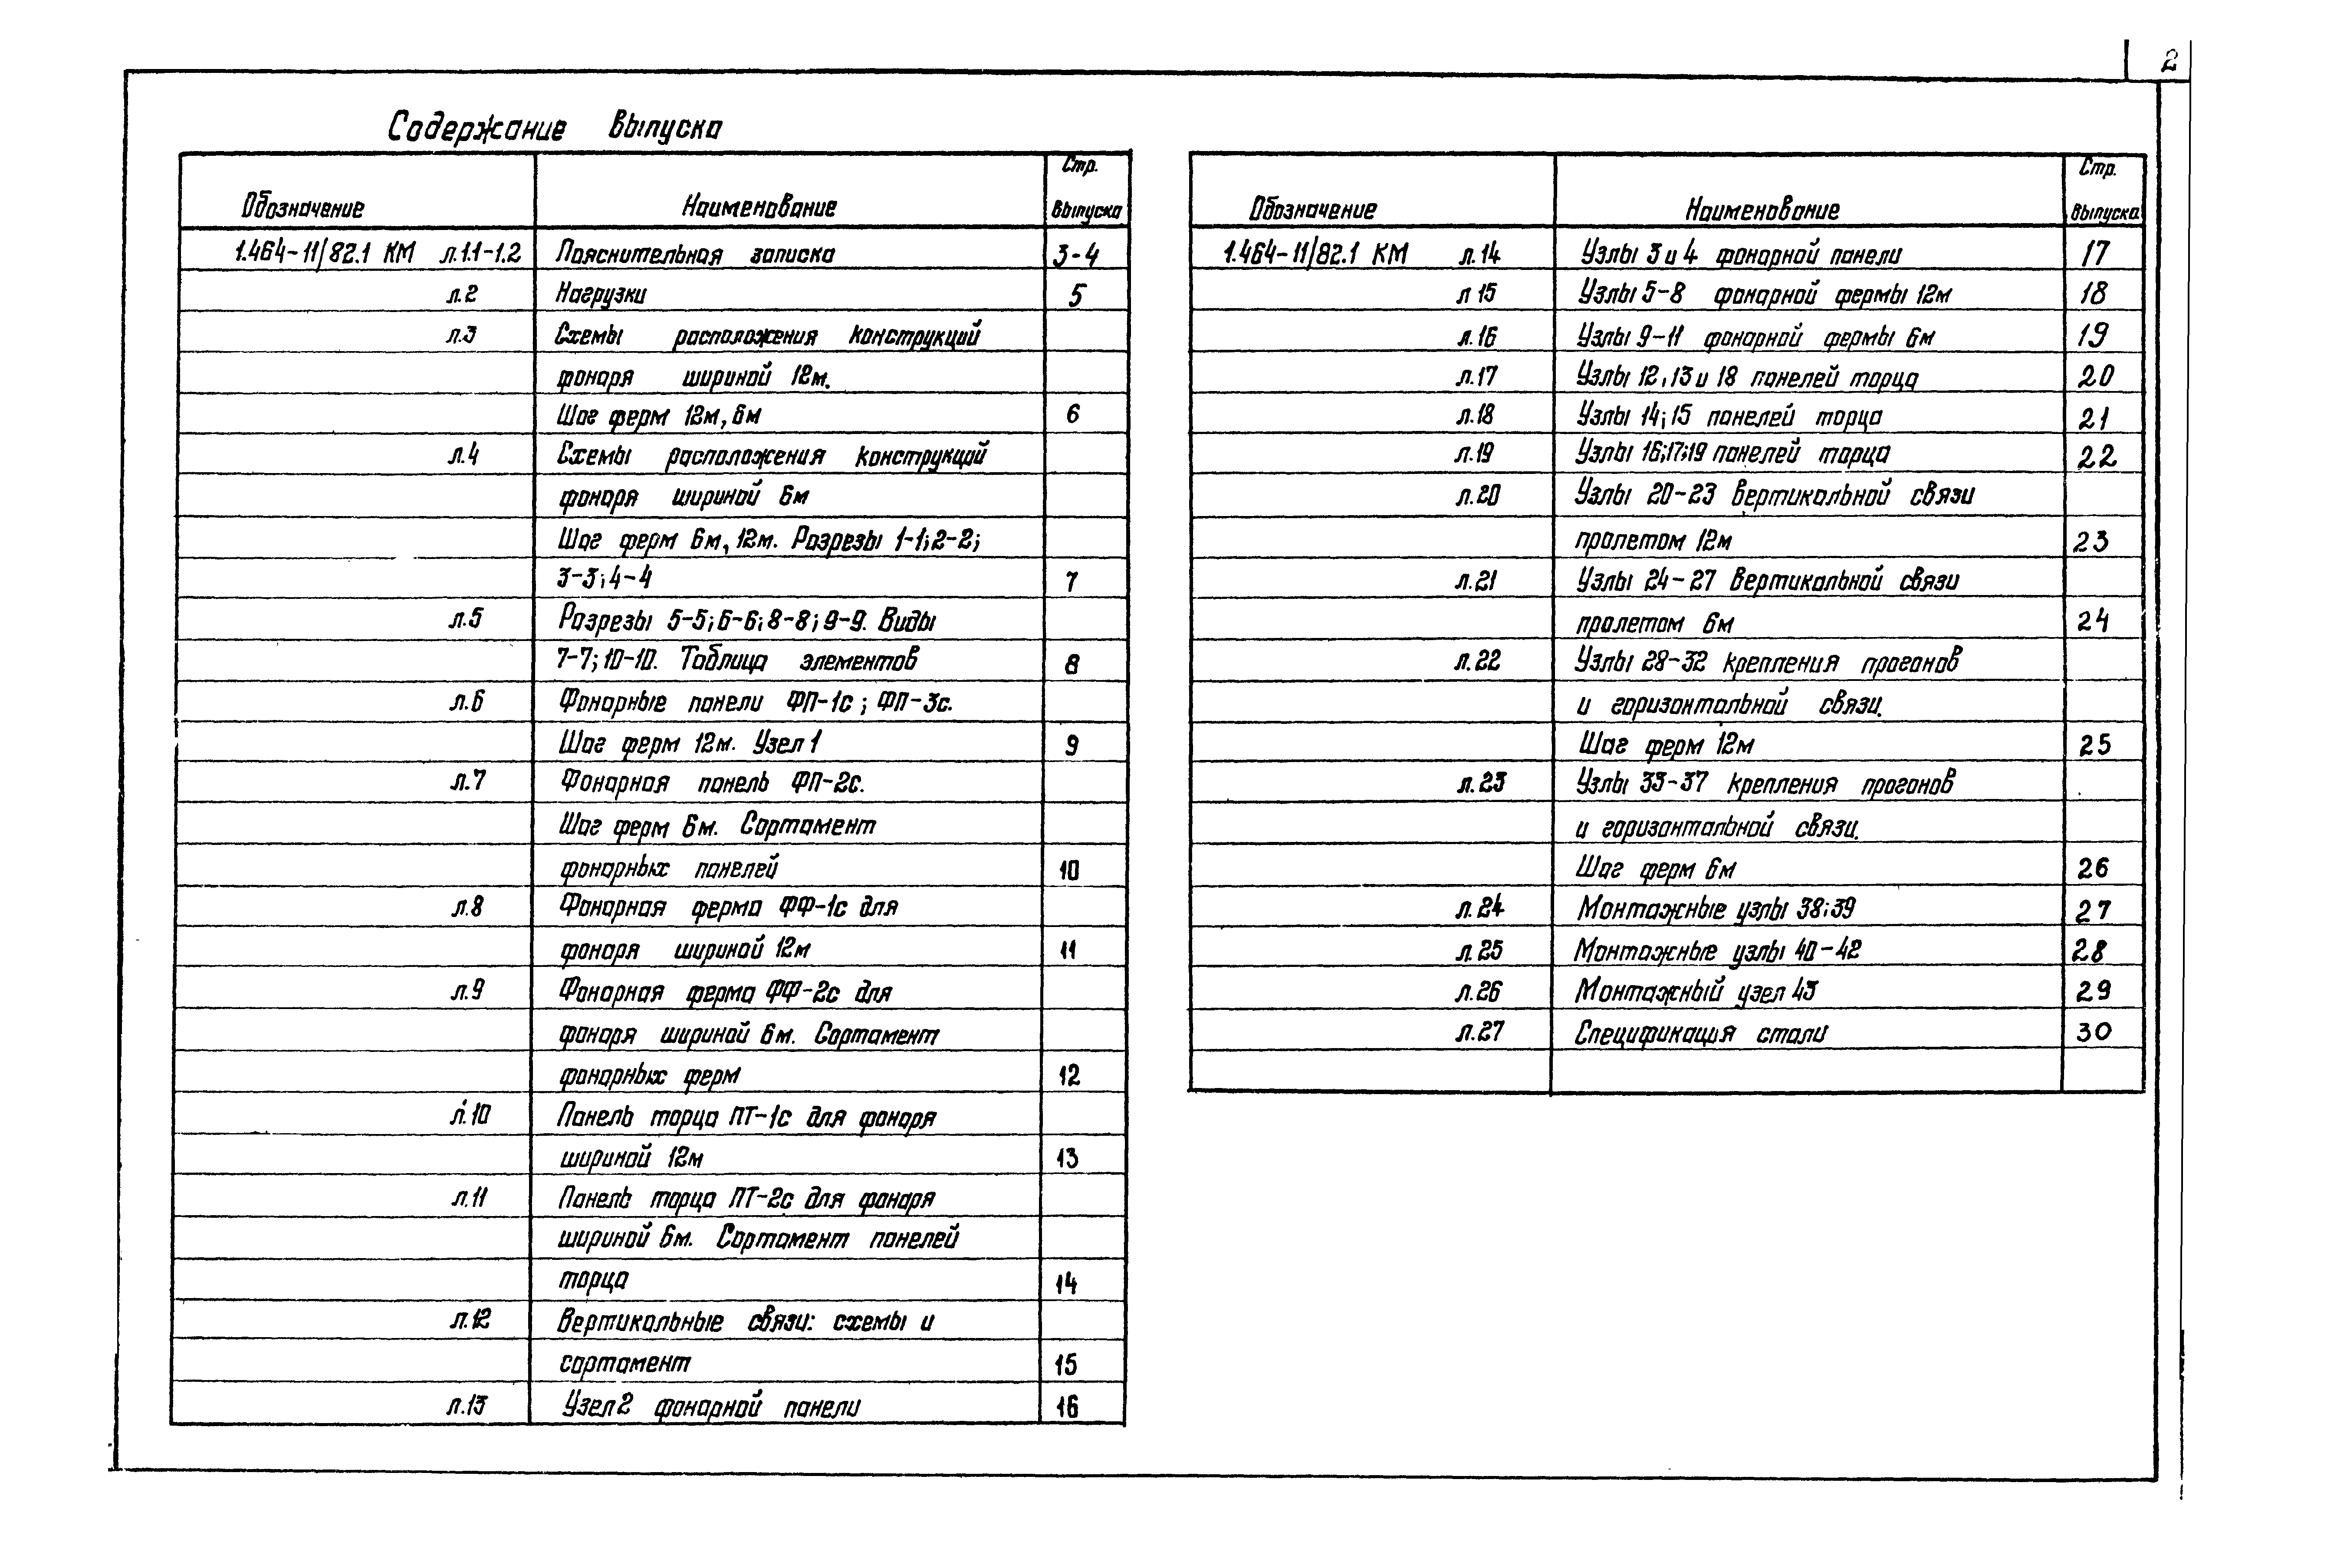 2
Содержание выпуска
Обозначение Наименование Стр. выпуска
1.464-11/82.1 КМ л.1.1-1.2 Пояснительная записка 3-4
л.2 Нагрузки 5
л.3 Схемы расположения конструкций
фонаря шириной 12м.
Шаг ферм 12м, 6м 6
л.4 Схемы расположения конструкций
фонаря шириной 6м
Шаг ферм 6м, 12м. Разрезы 1-1; 2-2;
3-3; 4-4 7
л.5 Разрезы 5-5; 6-6; 8-8; 9-9. Виды
7-7; 10-10. Таблица элементов 8
л.6 Фонарные панели ФП-1с; ФП-3с.
Шаг ферм 12м. Узел 1 9
л.7 Фонарная панель ФП-2с.
Шаг ферм 6м. Сортамент
фонарных панелей 10
л.8 Фонарная ферма ФФ-1с для
фонаря шириной 12м 11
л.9 Фонарная ферма ФФ-2с для
фонаря шириной 6м. Сортамент
фонарных ферм 12
л.10 Панель торца ПТ-1с для фонаря
шириной 12м 13
л.11 Панель торца ПТ-2с для фонаря
шириной 6м. Сортамент панелей
торца 14
л.12 Вертикальные связи: схемы и
сортамент 15
л.13 Узел 2 фонарной панели 16
Обозначение Наименование Стр. выпуска
1.464-11/82.1 КМ л.14 Узлы 3 и 4 фонарной панели 17
л 15 Узлы 5-8 фонарной фермы 12м 18
л.16 Узлы 9-11 фонарной фермы 6м 19
л.17 Узлы 12, 13 и 18 панелей торца 20
л.18 Узлы 14; 15 панелей торца 21
л.19 Узлы 16; 17; 19 панелей торца 22
л.20 Узлы 20-23 вертикальной связи
пролетом 12м 23
л.21 Узлы 24-27 вертикальной связи
пролетом 6м 24
л.22 Узлы 28-32 крепления прогонов
и горизонтальной связи.
Шаг ферм 12м 25
л.23 Узлы 33-37 крепления прогонов
и горизонтальной связи.
Шаг ферм 6м 26
л.24 Монтажные узлы 38; 39 27
л.25 Монтажные узлы 40-42 28
л.26 Монтажный узел 43 29
л.27 Спецификация стали 30